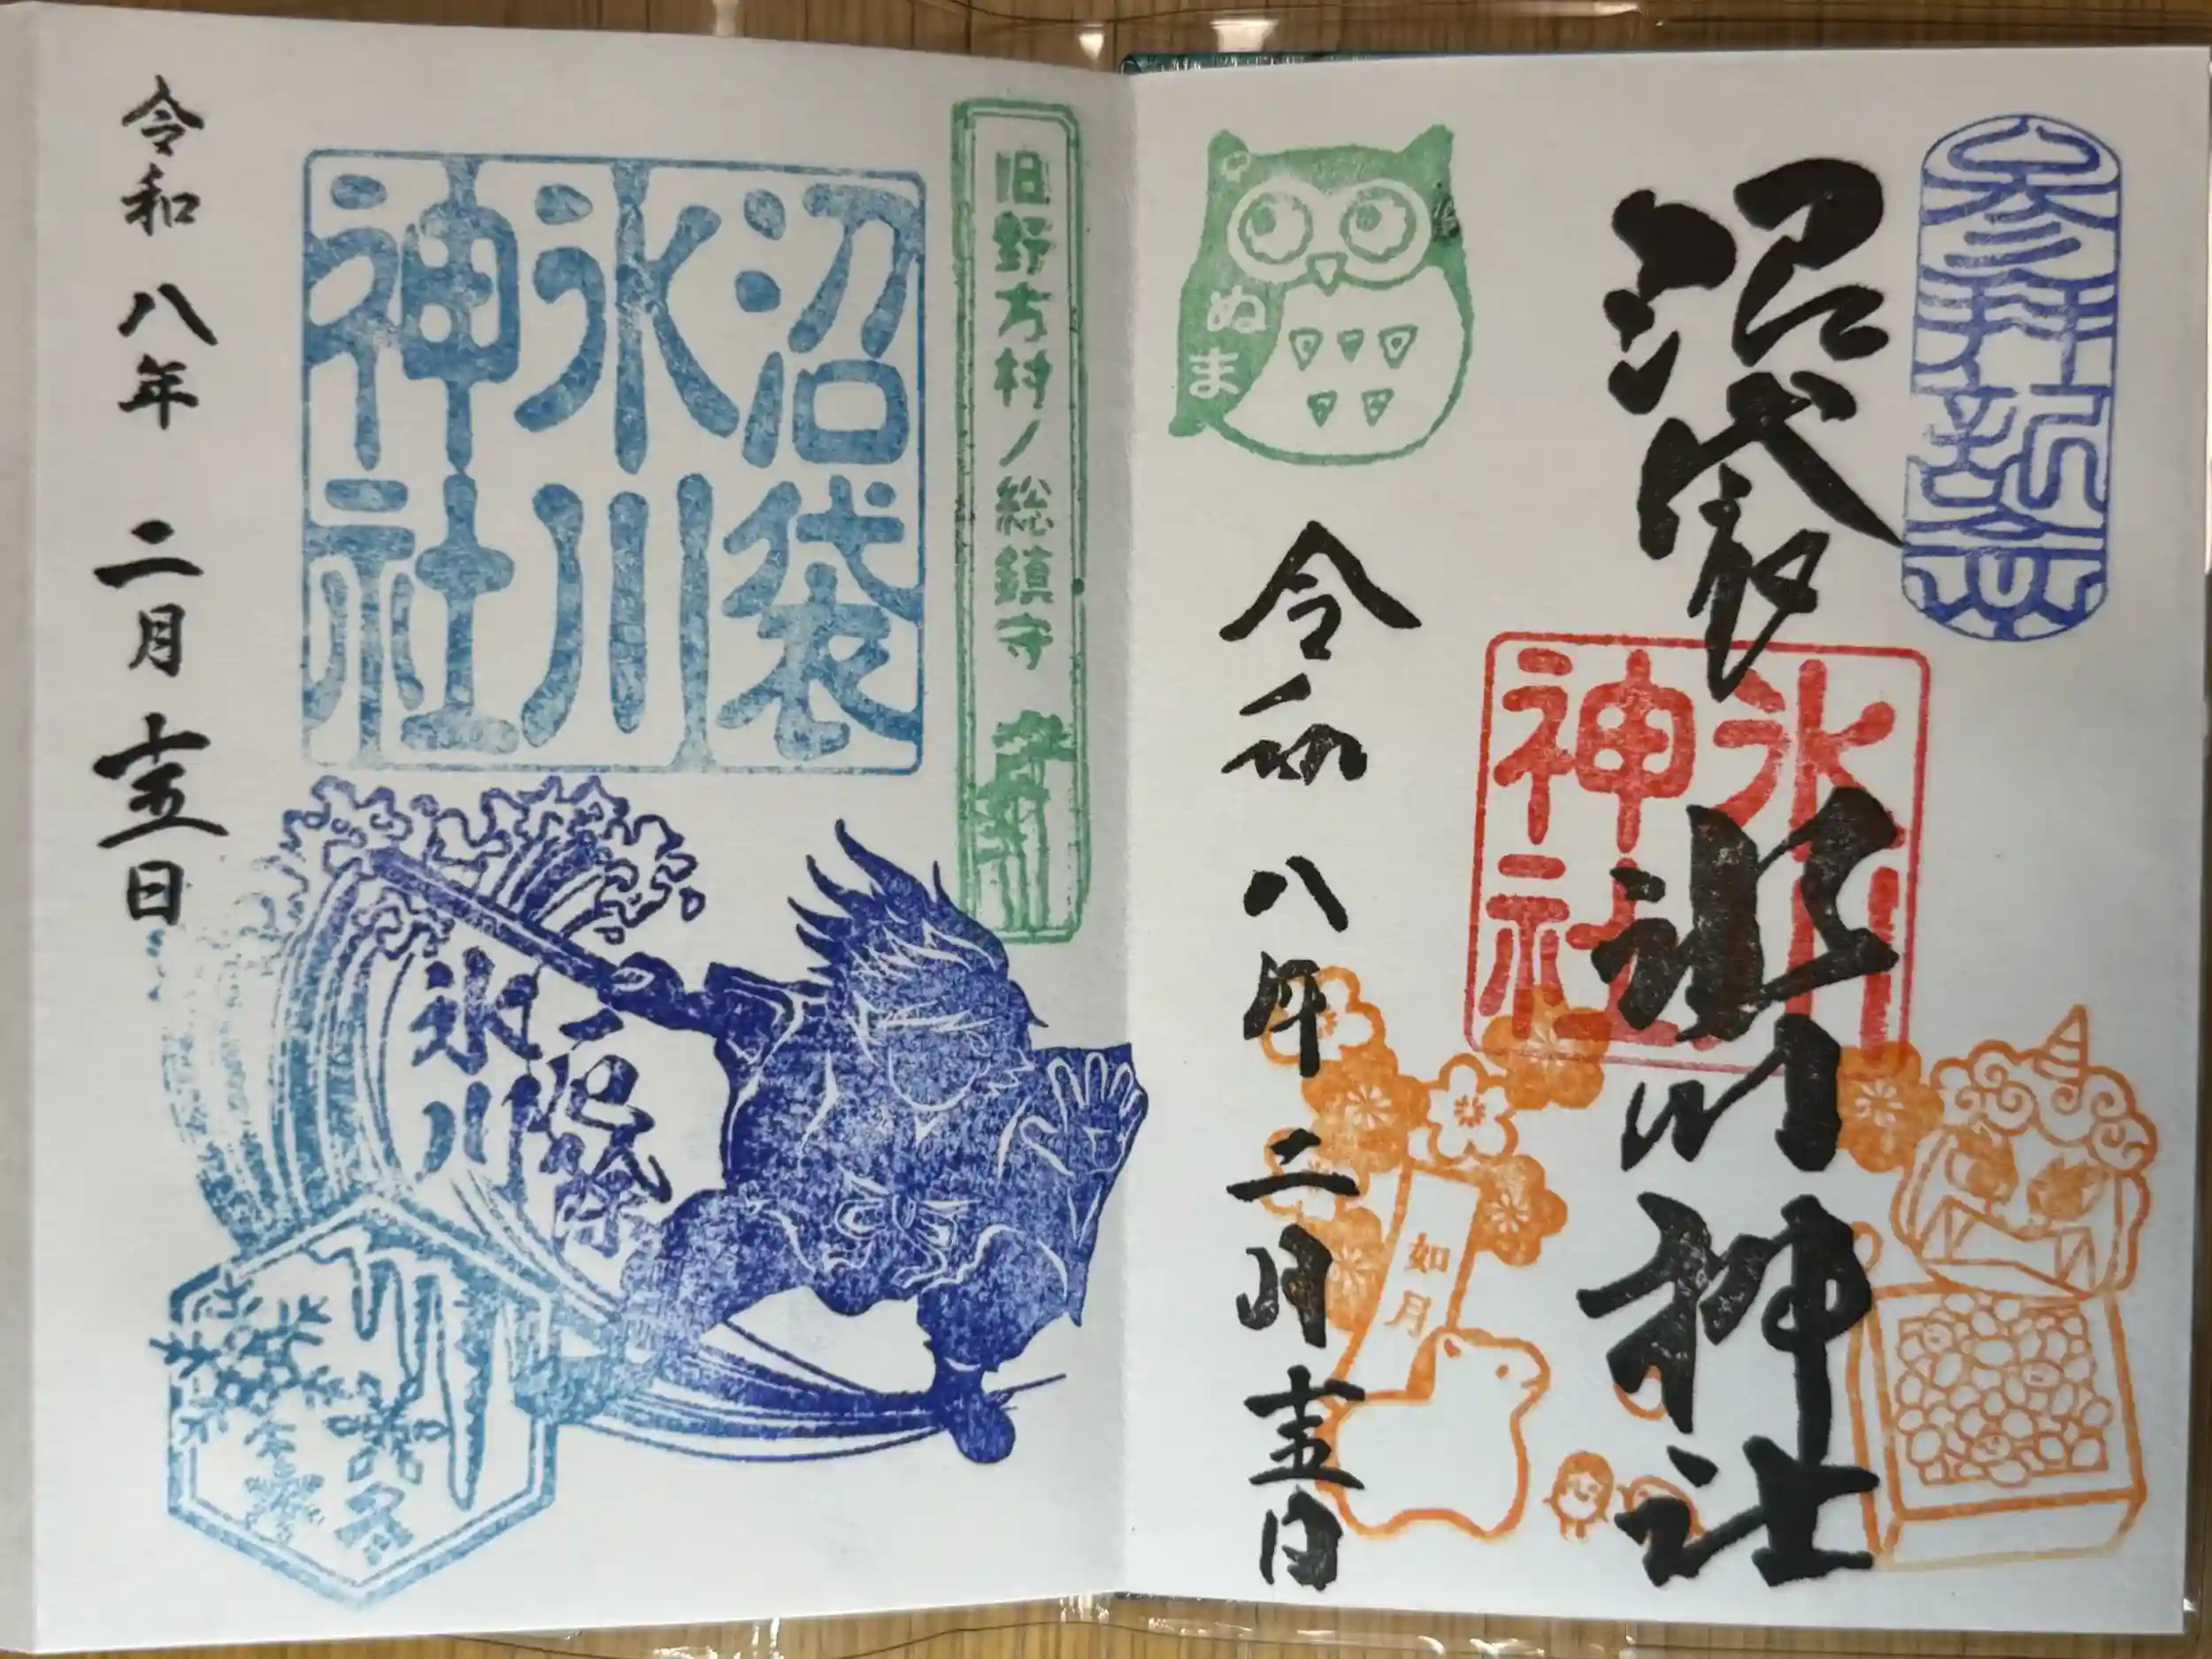 参拝記念
沼袋氷川神社
氷川
神社
ぬま
如月
令和八年二月十五日
旧野方村ノ総鎮守
沼袋
氷川
神社
氷川
令和八年 二月十五日